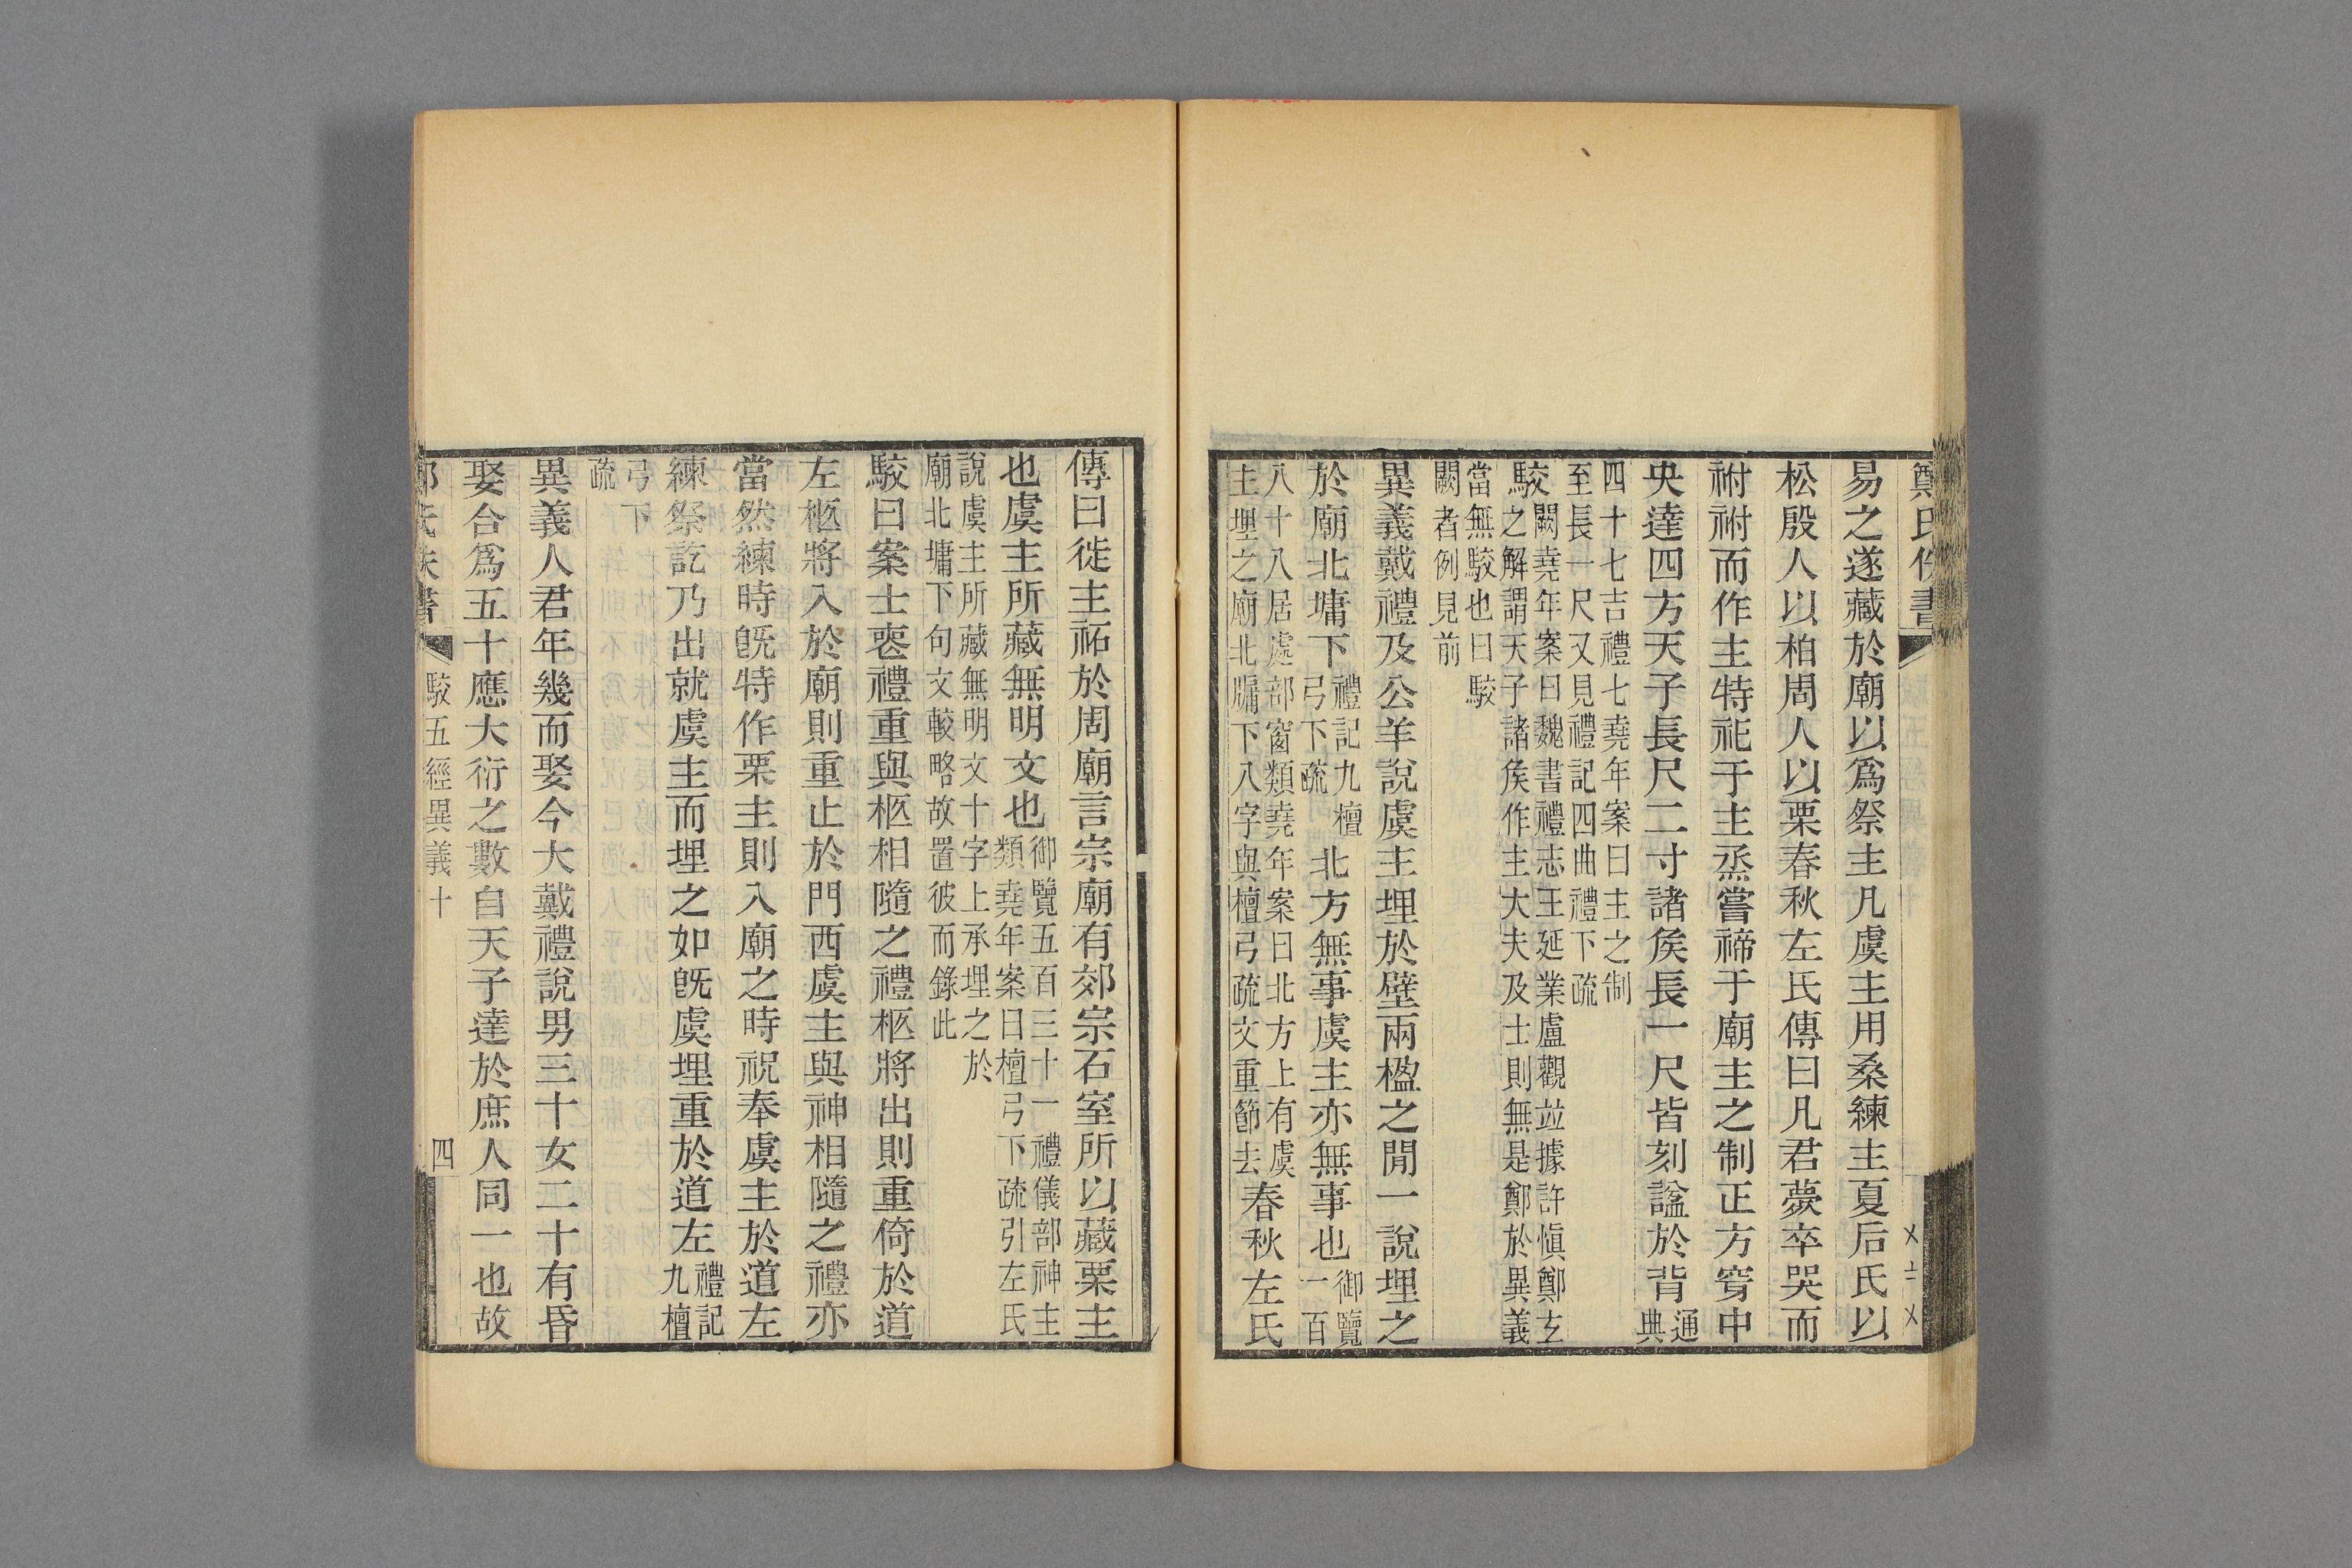 易之遂藏於廟以爲祭主凡虞主用桑練主夏后氏以
松殷人以柏周人以栗春秋左氏傳曰凡君薨卒哭而
祔祔而作主特祀于主烝嘗禘于廟主之制正方穿中
央達四方天子長尺二寸諸侯長一尺皆刻諡於背通典
四十七吉禮七堯年案曰主之制
至長一尺又見禮記四曲禮下疏
駮闕堯年案曰魏書禮志王延業盧觀竝據許愼鄭玄
之解謂天子諸侯作主大夫及士則無是鄭於異義
當無駮也曰駮
闕者例見前
異義戴禮及公羊說虞主埋於壁兩楹之閒一說埋之
於廟北墉下禮記九檀弓下疏北方無事虞主亦無事也御覽一百
八十八居處部窗類堯年案曰北方上有虞
主埋之廟北牖下八字與檀弓疏文重節去春秋左氏
傳曰徙主祏於周廟言宗廟有郊宗石室所以藏栗主
也虞主所藏無明文也御覽五百三十一禮儀部神主類堯年案曰檀弓下疏引左氏
說虞主所藏無明文十字上承埋之於
廟北墉下句文較略故置彼而錄此
駮曰案士喪禮重與柩相隨之禮柩將出則重倚於道
左柩將入於廟則重止於門西虞主與神相隨之禮亦
當然練時旣特作栗主則入廟之時祝奉虞主於道左
練祭訖乃出就虞主而埋之如旣虞埋重於道左禮記九檀
弓下
疏
異義人君年幾而娶今大戴禮說男三十女二十有昏
娶合爲五十應大衍之數自天子達於庶人同一也故
駮五經異義十
四